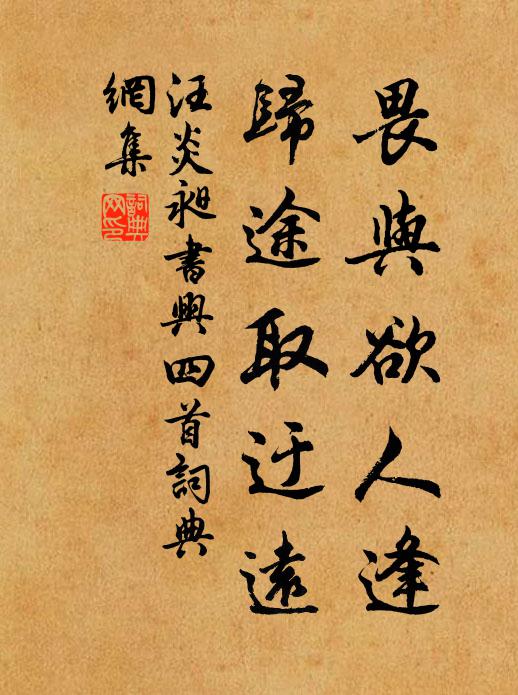 畏與欲人逢
歸途取迂遠
汪炎昶書興四首詞典
網集
詞典
网印